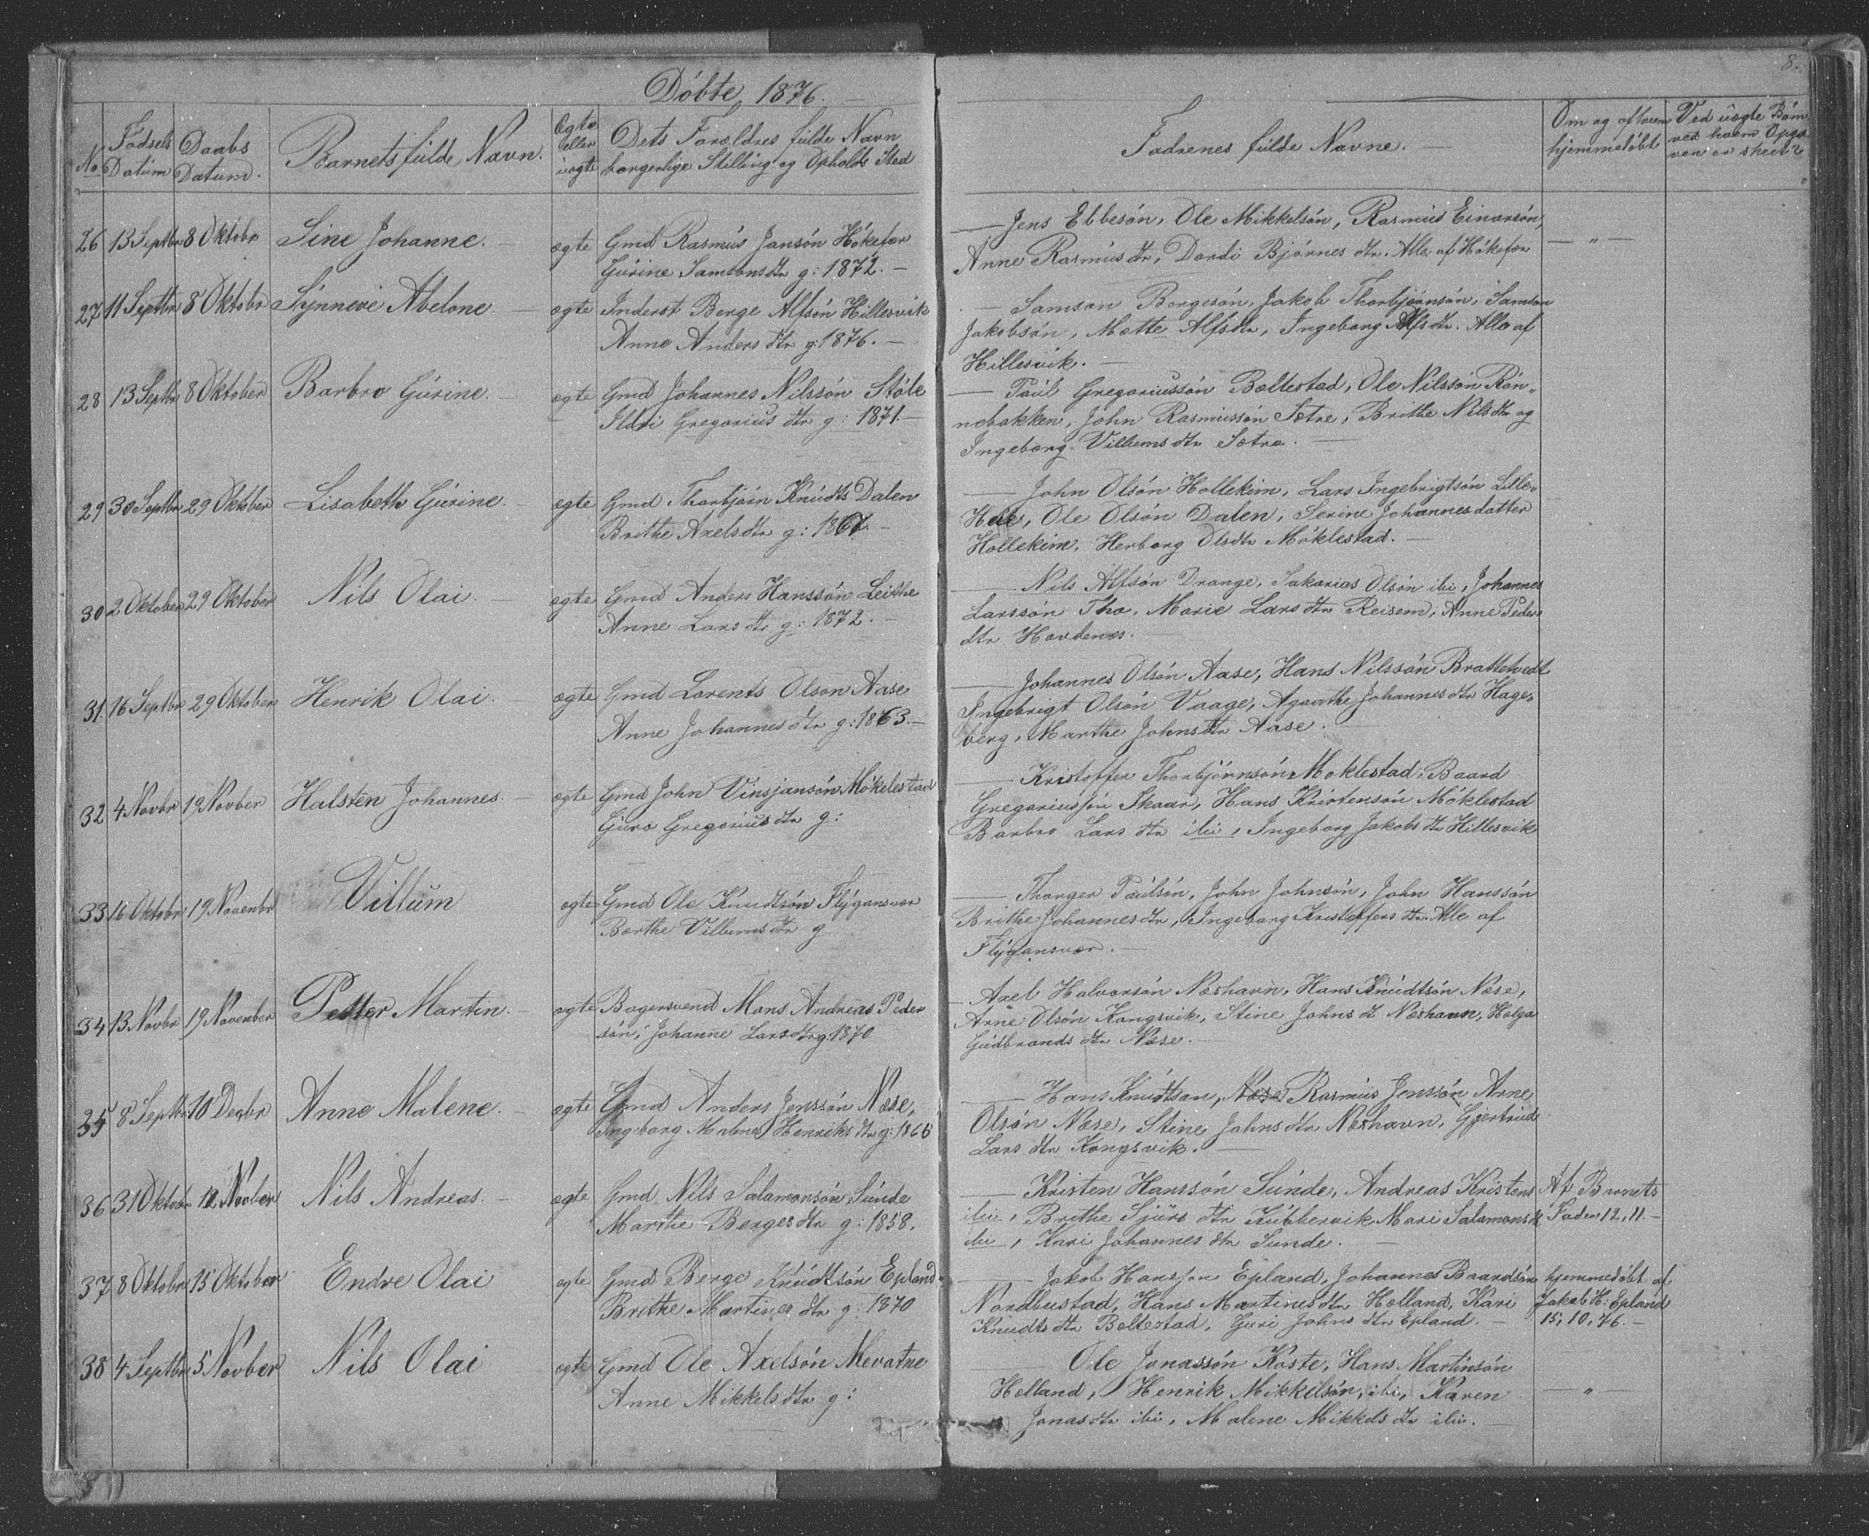 8.
Döbte 1876.
No
Födsels Datum
Daabs Datum.
Barnets fulde Navn.
Ægte eller uægte
Dets Forældres fulde Navn borgerlige Stilling og Opholds Sted
Fadrenes fulde Navne.
Om og af hvem hjemmedöbt
Ved uægte Börn ved hvem Opgaven er skeet?
26 13 Septbr 8 Oktobr Sine Johanne. ægte Gmd Rasmus Jansön Hökefær
Gurine Samsonsdtr g: 1872.
Jens Ebbesön, Ole Mikkelsön, Rasmus Einarsön,
Anne Rasmusdtr, Dordi Björnesdtr. Alle af Hökefær
— " —
27 11 Septbr 8 Oktobr Synneve Abelone ægte Inderst Berge Alfsön Hillesvik
Anne Andersdtr g: 1876.
Samson Borgesön, Jakob Thorbjörnsön, Samson
Jakobsön, Mætte Alfsdtr, Ingeborg Alfsdtr. Alle af
Hillesvik.
28 13 Septbr 8 Oktober Barbro Gurine. ægte Gmd Johannes Nilssön Stöle
Ildri Gregoriusdtr g: 1871.
Paul Gregoriussön Boltestad, Ole Nilsson Rön-
nebakken, John Rasmussön Sætre, Brithe Nilsdtr og
Ingeborg Villumsdtr Sætre.
29 30 Septbr 29 Oktober Lisabeth Gurine. ægte Gmd Thorbjörn Knudts Dalen
Brithe Axelsdtr g: 1867.
John Olsön Hollekim, Lars Ingebrigtsön Lille-
Ole Olsön Dalen, Serine Johannesdatter
Hollekim, Herborg Olsdtr Möklestad.
30 2 Oktober 29 Oktober Nils Olai. ægte Gmd Anders Hanssön Leithe
Anne Larsdtr g: 1872.
Nils Alfsön Drange, Sakarias Olsön ibi, Johannes
Larssön Tho, Marie Larsdtr Reisem, Anne Peders
dtr Hovdenes.
31. 16 Septbr 29 Oktober Henrik Olai. ægte Gmd Lorents Olson Aase
Anne Johannesdtr g: 1863.
Johannes Olsön Aase, Hans Nilssön Brattetvedt
Ingebrigt Olsön Vaage, Agaathe Johannesdtr Hage-
berg, Marthe Johnsdtr Aase.
32 4 Novbr 19 Novber Halsten Johannes. ægte Gmd John Vinsjansön Mökelestad
Guro Gregoriusdtr g:
Kristoffer Thorbjörnsön Moklestad, Baard
Gregoriussön Skaar, Hans Kristensön Möklestad
Barbro Larsdtr ibi, Ingeborg Jakobsdtr Hillesvik
33 16 Oktobr 19 Novenbr Villum ægte Gmd Ole Knudtsön Flygansvær
Barthe Villumsdtr g
Thorger Paulsön, John Johnsön, John Hanssön
Brithe Johannesdtr, Ingeborg Kristoffersdtr Alle af
Flygansvær.
34 13 Novbr 19 November Petter Martin. ægte Bagersvend Mons Andreas Peder
sön, Johanne Larsdtr g: 1870
Axel Halvorsön Næshavn, Hans Knudtsön Næse,
Arne Olsön Kongsvik, Stine Johnsd. Næshavn, Helga
Gudbrandsdtr Næse.
35 8 Septbr 10 Decbr Anne Malene. ægte Gmd Anders Jenssön Næse,
Ingeborg Malene Henriksdtr g: 1866
Hans Knudtson, Næse Rasmus Jenssön Arne
Olsön Næse, Stine Johnsdtr Næshavn, Gjertrud
Larsdtr Kongsvik.
36 31 Oktobr 12 Novber Nils Andreas. ægte Gmd. Nils Salamonsön Sunde
Marthe Bergesdtr g: 1858.
Kristen Hanssön Sunde, Andreas Kristens
ibi, Brithe Sjursdtr Kubbervik Mari Salamonsdt
ibi, Kari Johannesdtr Sunde.
Af Barnets
Fader 12, 11.
37 8 Oktobr 15 Oktober Endre Olai ægte Gmd Berge Knudtsön Epland
Brithe Martinesdtr g: 1870
Jakob Hansson Epland, Johannes Baardsön
Nordbustad, Hans Martinusdtr Holland, Kari
Knudtsdtr Boltestad, Guri Johnsdtr Epland.
hjemmedöbt af
Jakob H: Epland
15, 10, 76.
38 4 Septbr 5 Novber Nils Olai ægte Gmd Ole Axelsön Mevatne
Anne Mikkelsdtr g:
Ole Jonassön Köste, Hans Martinsön
Helland, Henrik Mikkilsön, ibi, Karen
Jonasdtr ibi, Malene Mikkelsdtr ibi.
— " —